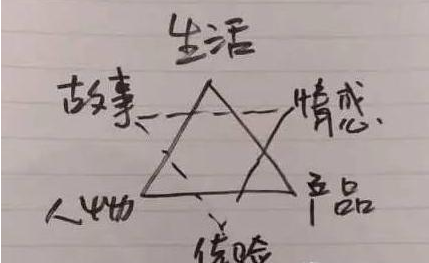 生活
故事
情感
人物
产品
体验